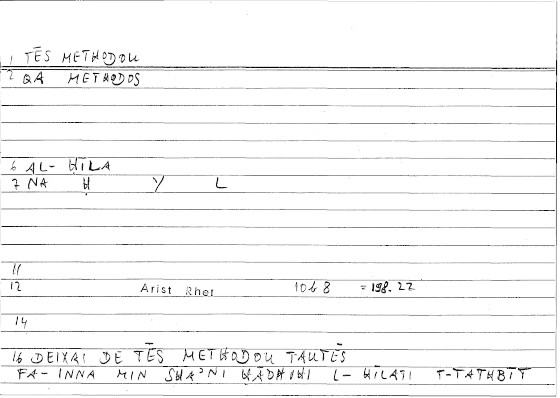 1 TĒS METHODOU
2 QA METHODOS
6 AL- ḤĪLA
7 NA Ḥ Y L
11
12 Arist Rhet 10b8 = 198.22
14
16 DEIXAI DE TĒS METHODOU TAUTĒS
FA- INNA MIN SHAʾNI HĀDHIHI L- ḤĪLATI T-TATHBĪT